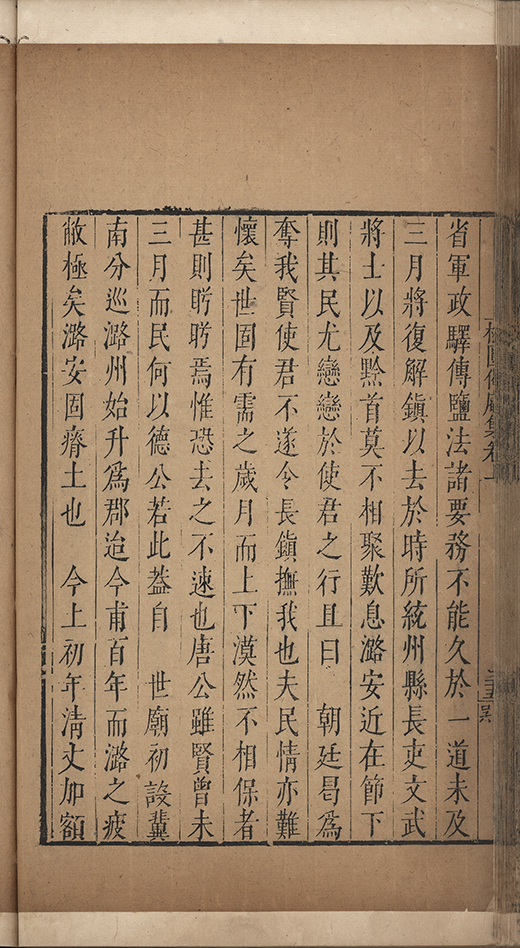 省軍政驛傳鹽法諸要務不能久於一道未及
三月將復解鎮以去於時所統州縣長吏文武
將士以及黔首莫不相聚歎息潞安近在節下
則其民尤戀戀於使君之行且曰 朝廷曷爲
奪我賢使君不遂令長鎮撫我也夫民情亦難
懷矣世固有需之歲月而上下漠然不相保者
甚則眄眄焉惟恐去之不速也唐公雖賢曾未
三月而民何以德公若此葢自 世廟初設冀
南分巡潞州始升爲郡迨今甫百年而潞之疲
敝極矣潞安固瘠土也 今上初年清丈加額